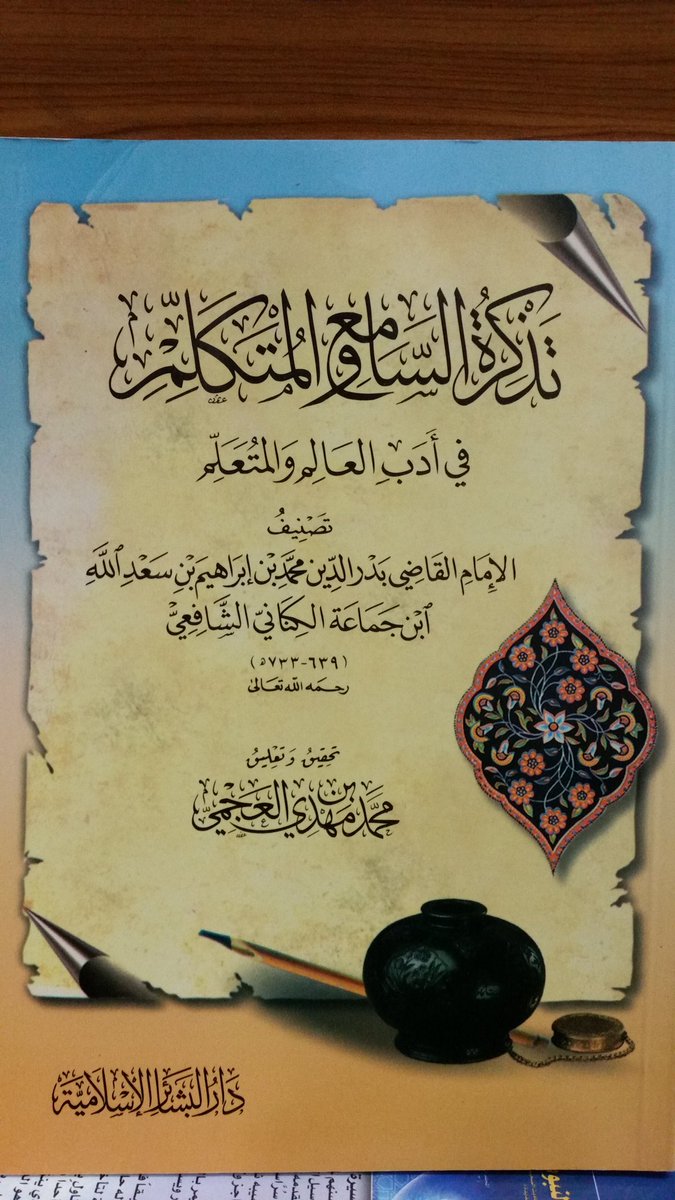 تَذْكِرَةُ السَّامِعِ وَالمُتَكَلِّمِ
في أَدَبِ العَالِمِ وَالمُتَعَلِّمِ
تَصْنِيفُ
الإِمَامِ القَاضِي بَدْرِ الدِّين مُحَمَّد بْنِ إِبْرَاهِيم بْنِ سَعْدِ اللَّهِ
ابْنِ جَمَاعَة الكِنَانِيّ الشَّافِعِيّ
(٦٣٩-٧٣٣ه)
رحمه الله تعالى
تحقيق وتعليق
محمّد بن مهدي العجمي
دَارُ البَشَائِرِ الإِسْلَامِيَّة